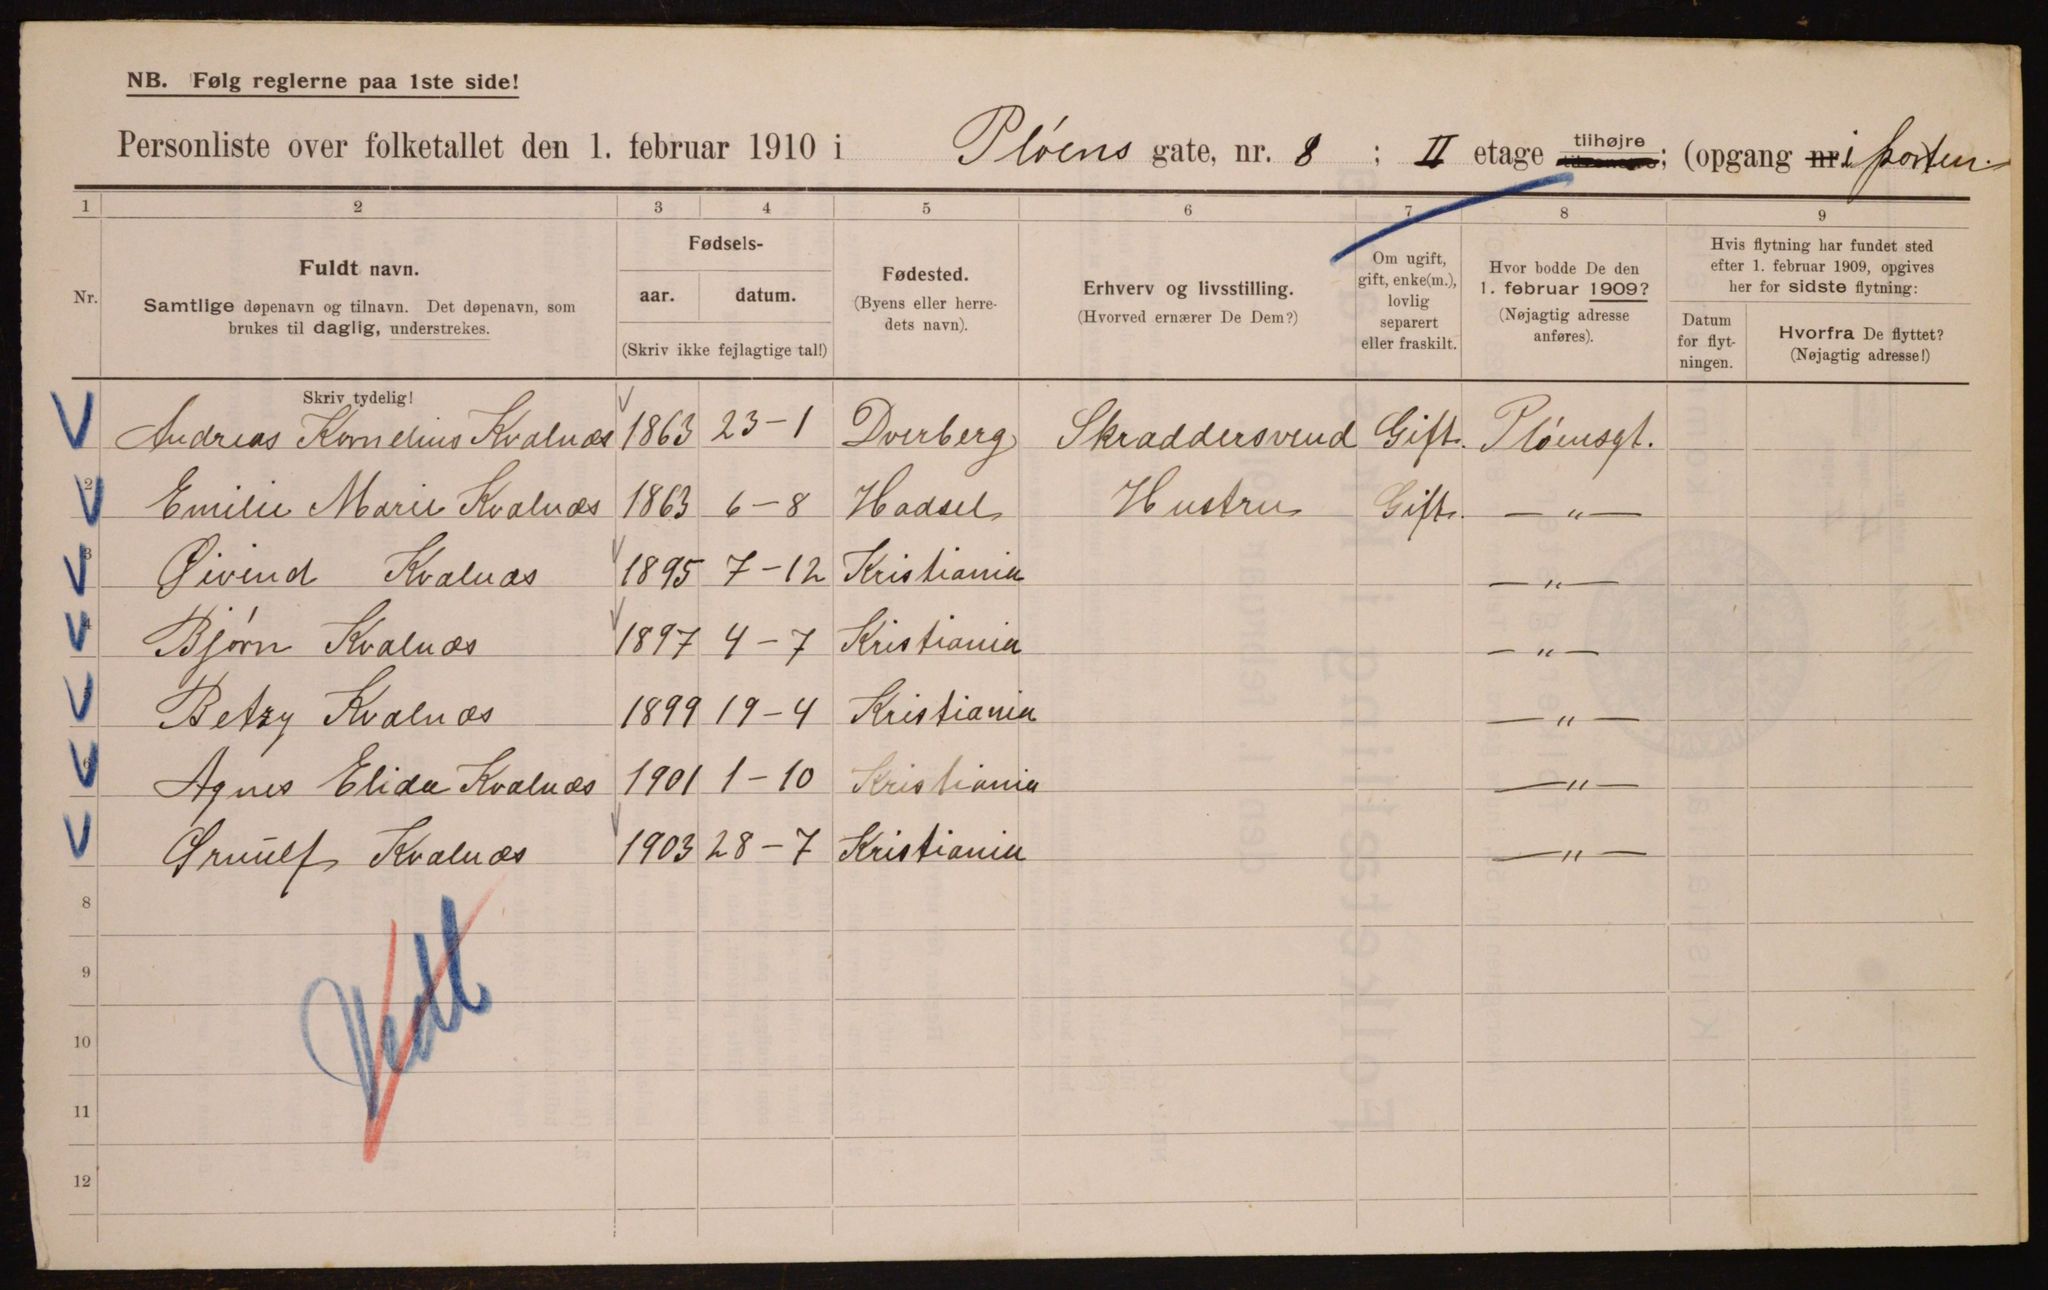 NB. Følg reglerne paa 1ste side!
Personliste over folketallet den 1. februar 1910 i Pløens gate, nr. 8 ; II etage tilhøjre ; (opgang nr. i porten.
1 2 3 4 5 6 7 8 9
Nr.
Fuldt navn.
Samtlige døpenavn og tilnavn. Det døpenavn, som
brukes til daglig, understrekes.
Fødsels-
aar. datum.
(Skriv ikke fejlagtige tal!)
Fødested.
(Byens eller herre-
dets navn).
Erhverv og livsstilling.
(Hvorved ernærer De Dem?)
Om ugift,
gift, enke(m.),
lovlig
separert
eller fraskilt.
Hvor bodde De den
1. februar 1909?
(Nøjagtig adresse
anføres).
Hvis flytning har fundet sted
efter 1. februar 1909, opgives
her for sidste flytning:
Datum
for flyt-
ningen.
Hvorfra De flyttet?
(Nøjagtig adresse!)
Skriv tydelig!
Andreas Kornelius Kvalnæs 1863 23-1 Dverberg Skraddersvend Gift. Pløensgt.
2 Emilie Marie Kvalnæs 1863 6-8 Hadsel Hustru Gift. — " —
3 Øivind Kvalnæs 1895 7-12 Kristiania — " —
4 Bjørn Kvalnæs 1897 4-7 Kristiania — " —
5 Betzy Kvalnæs 1899 19-4 Kristiania — " —
6 Agnes Elida Kvalnæs 1901 1-10 Kristiania — " —
Ørnulf Kvalnæs 1903 28-7 Kristiania — " —
8
9
10
11
12